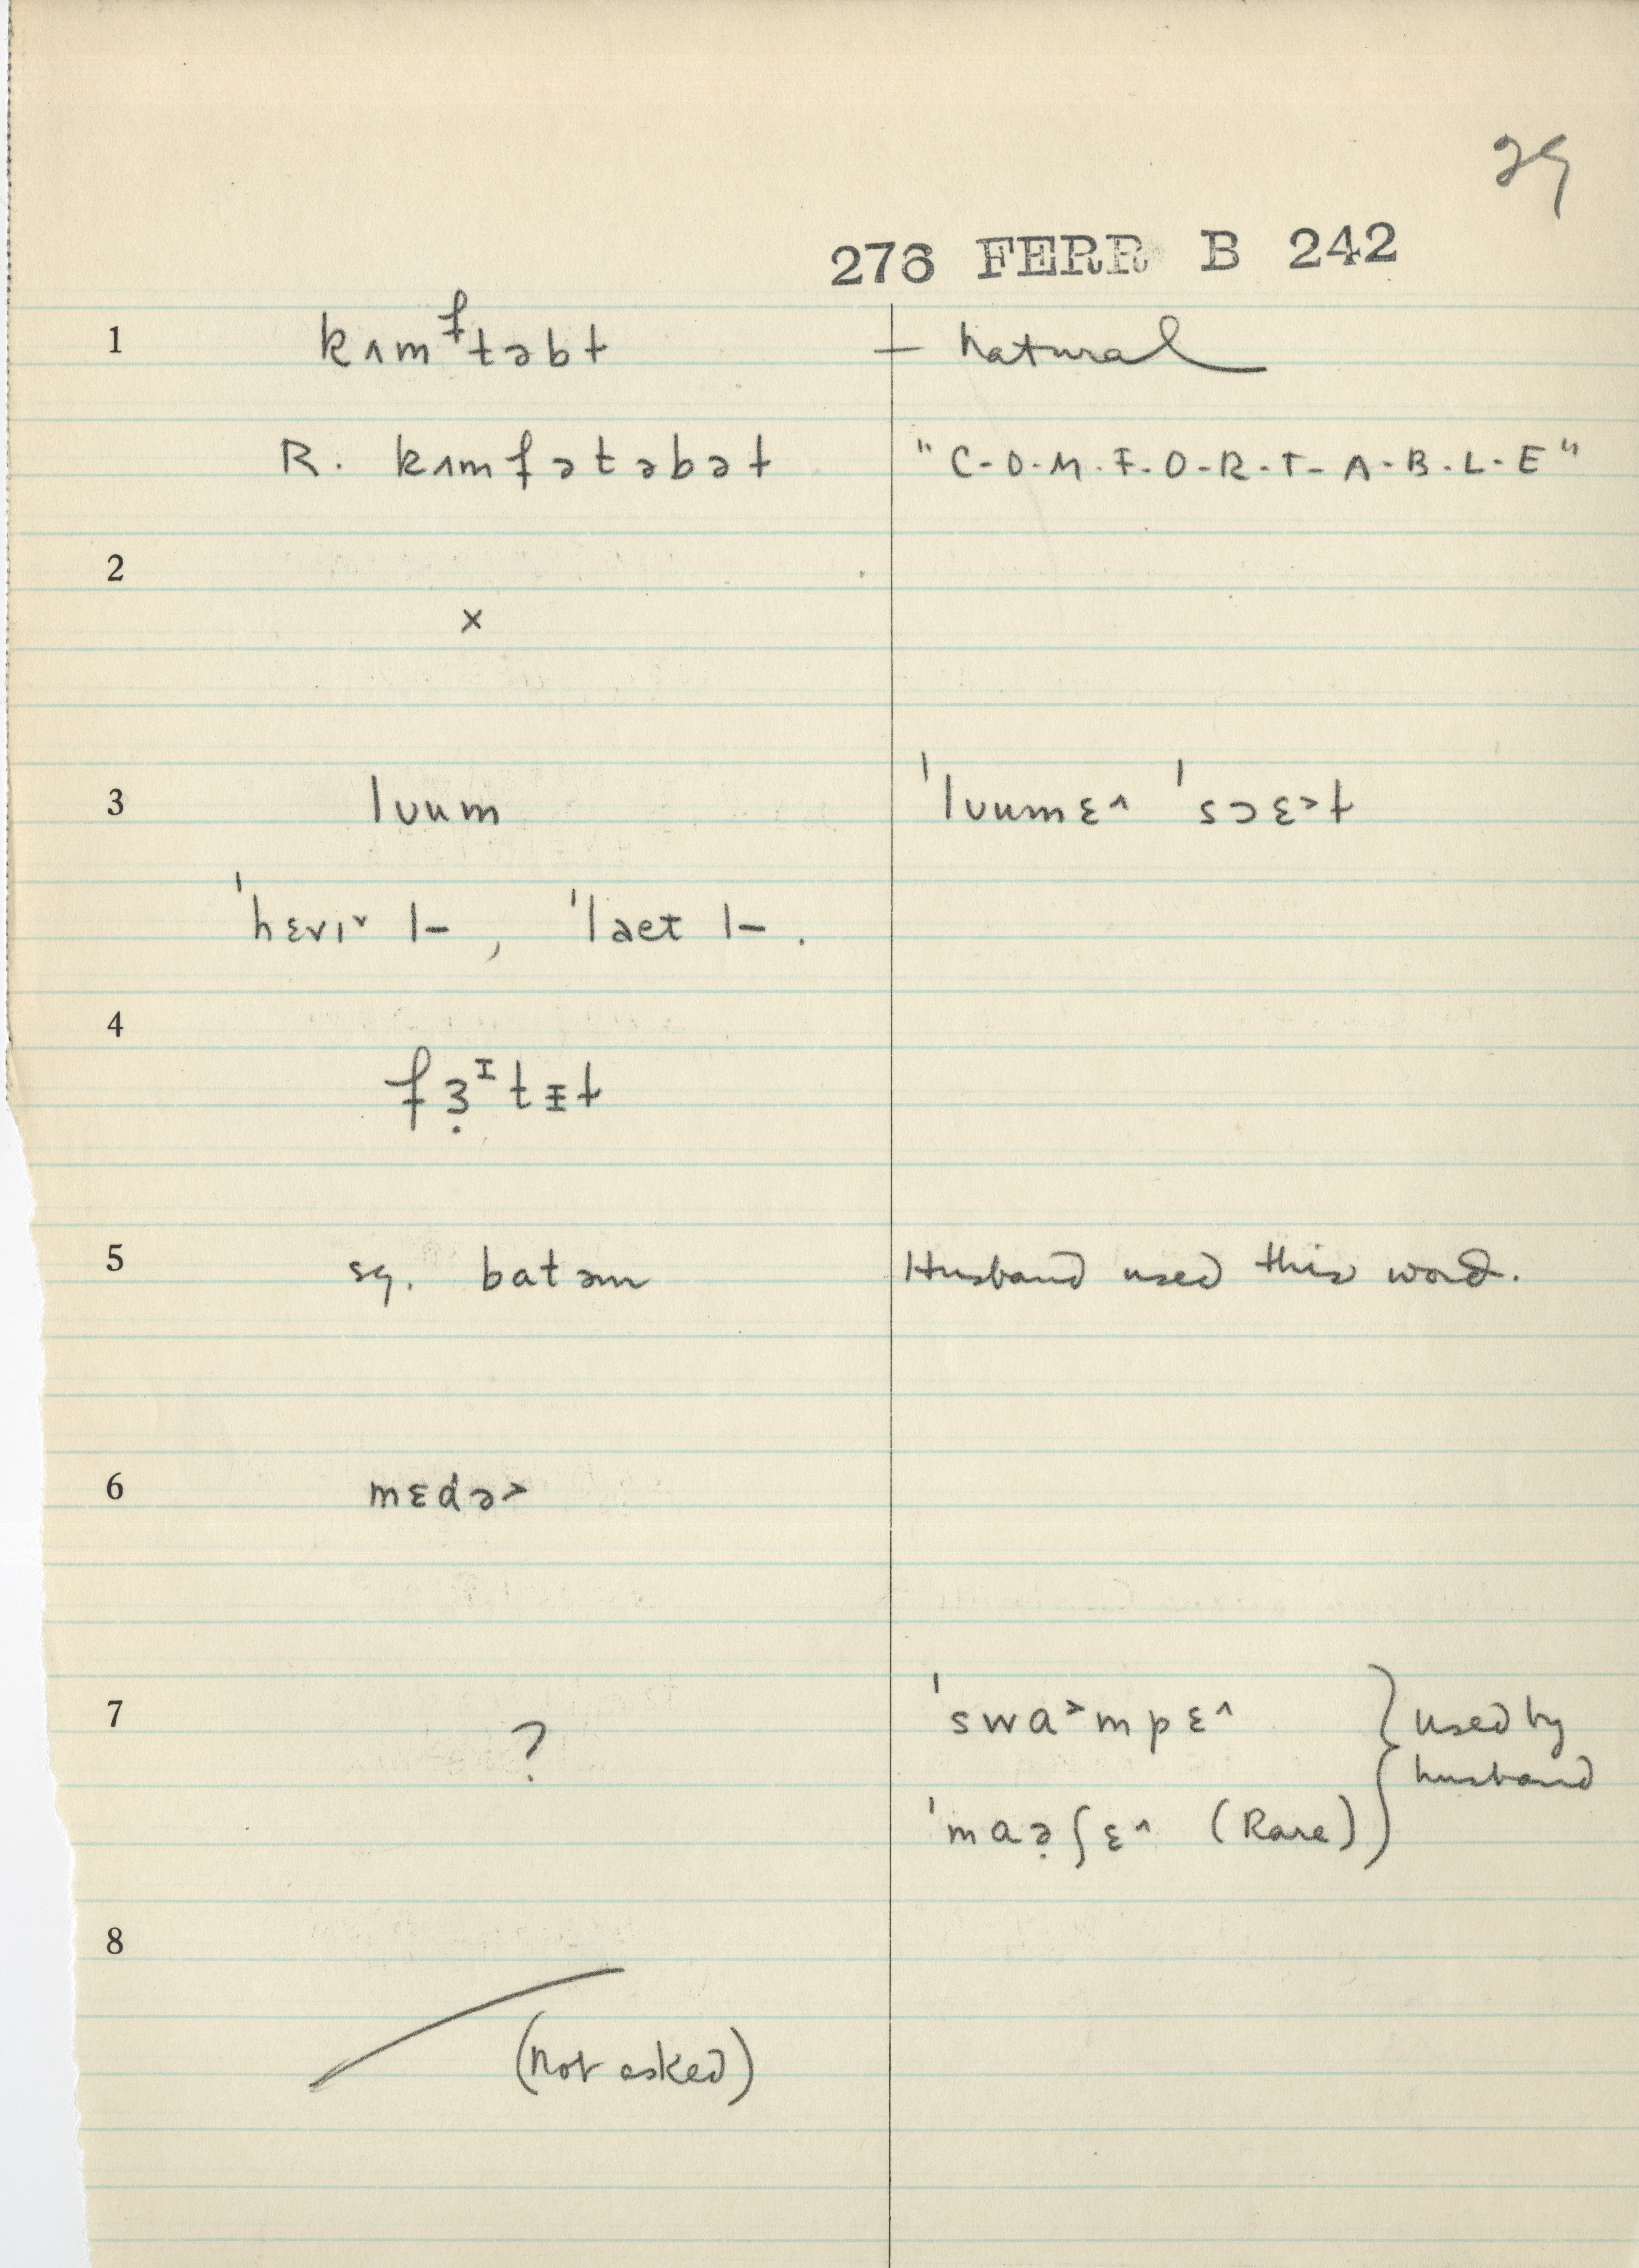 29
276 FERR B 242
1 kʌmᶠtəbɫ — natural
R. kʌmfətəbəɫ "C-O-M-F-O-R-T-A-B-L-E"
2
×
3 lʊum ˈlʊumɛ^ ˈsɔɛ>ɫ
ˈhɛvɪˇ l–, ˈlaet l–.
4
fɜ̣ᴵtɪ̵ɫ
5 sg. batəm Husband used this word.
6 mɛdə>
7 ? ˈswa>mpɛ^ } used by
husband
ˈmaə̣ʃɛ^ (Rare)
8
(not asked)